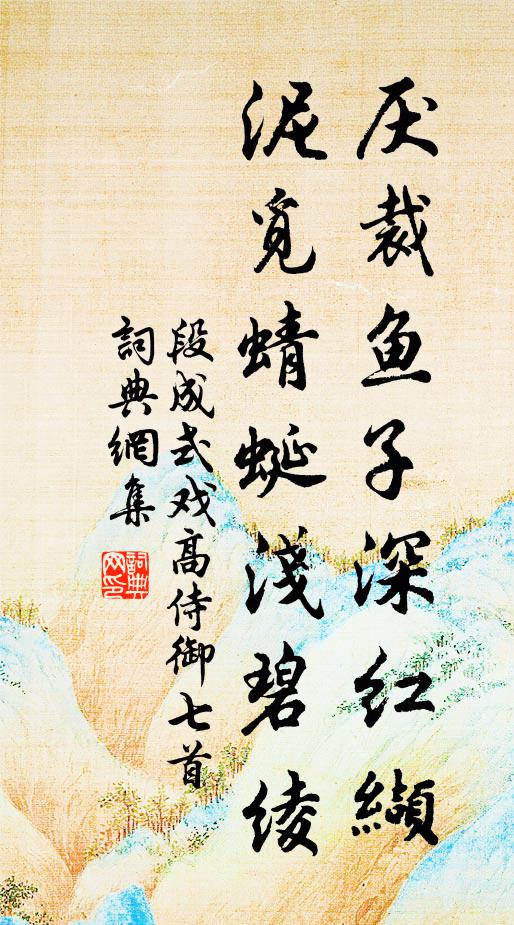 厌裁鱼子深红缬
泥觅蜻蜓浅碧绫
段成式戏高侍御七首
詞典網集
詞典